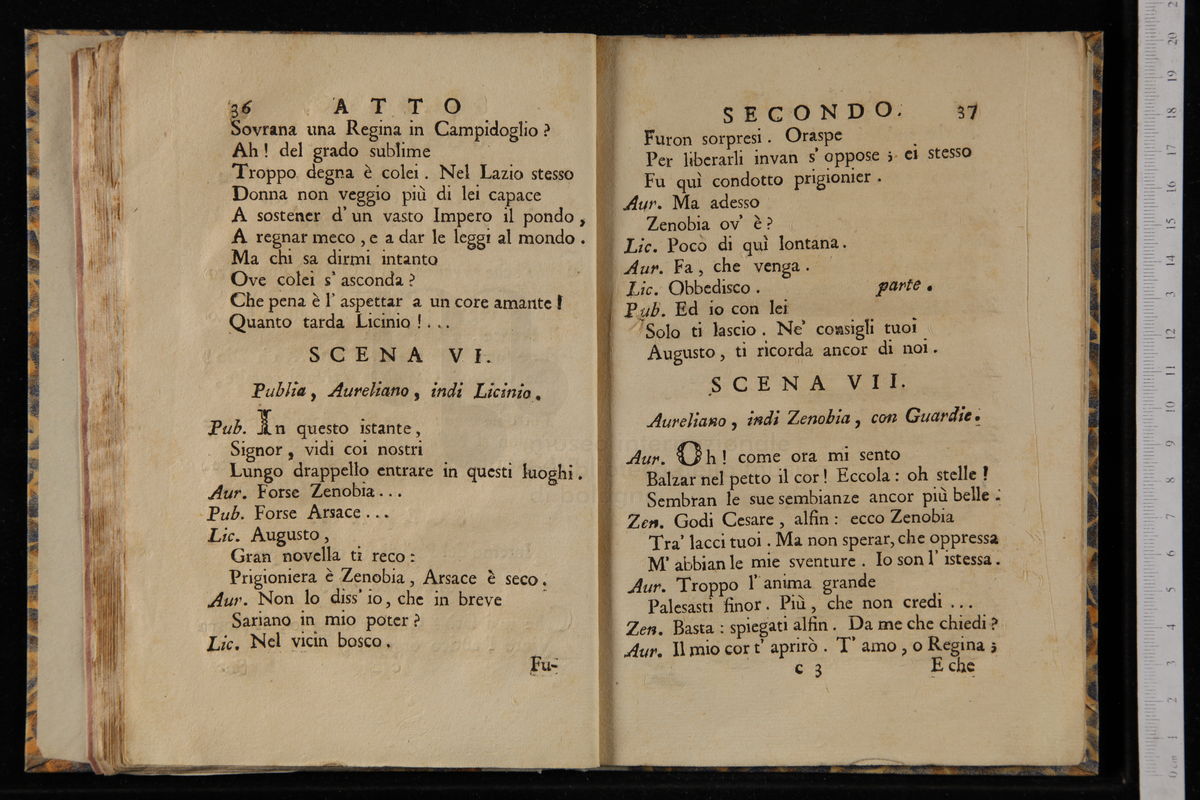 36 ATTO
Sovrana una Regina in Campidoglio?
Ah! del grado sublime
Troppo degna è colei. Nel Lazio stesso
Donna non veggio più di lei capace
A sostener d'un vasto Impero il pondo,
A regnar meco, e a dar le leggi al mondo.
Ma chi sa dirmi intanto
Ove colei s'asconda?
Che pena è l'aspettar a un core amante!
Quanto tarda Licinio!...
SCENA VI.
Publia, Aureliano, indi Licinio.
Pub. In questo istante,
Signor, vidi coi nostri
Lungo drappello entrare in questi luoghi.
Aur. Forse Zenobia...
Pub. Forse Arsace...
Lic. Augusto,
Gran novella ti reco:
Prigioniera è Zenobia, Arsace è seco.
Aur. Non lo diss'io, che in breve
Sariano in mio poter?
Lic. Nel vicin bosco.
Fu-
SECONDO. 37
Furon sorpresi. Oraspe
Per liberarli invan s'oppose; ei stesso
Fu quì condotto prigionier.
Aur. Ma adesso
Zenobia ov'è?
Lic. Poco di quì lontana.
Aur. Fa, che venga.
Lic. Obbedisco. parte.
Pub. Ed io con lei
Solo ti lascio. Ne' consigli tuoi
Augusto, ti ricorda ancor di noi.
SCENA VII.
Aureliano, indi Zenobia, con Guardie.
Aur. Oh! come ora mi sento
Balzar nel petto il cor! Eccola: oh stelle!
Sembran le sue sembianze ancor più belle.
Zen. Godi Cesare, alfin: ecco Zenobia
Tra' lacci tuoi. Ma non sperar, che oppressa
M'abbian le mie sventure. Io son l'istessa.
Aur. Troppo l'anima grande
Palesasti finor. Più, che non credi...
Zen. Basta: spiegati alfin. Da me che chiedi?
Aur. Il mio cor t'aprirò. T'amo, o Regina;
c 3 E che